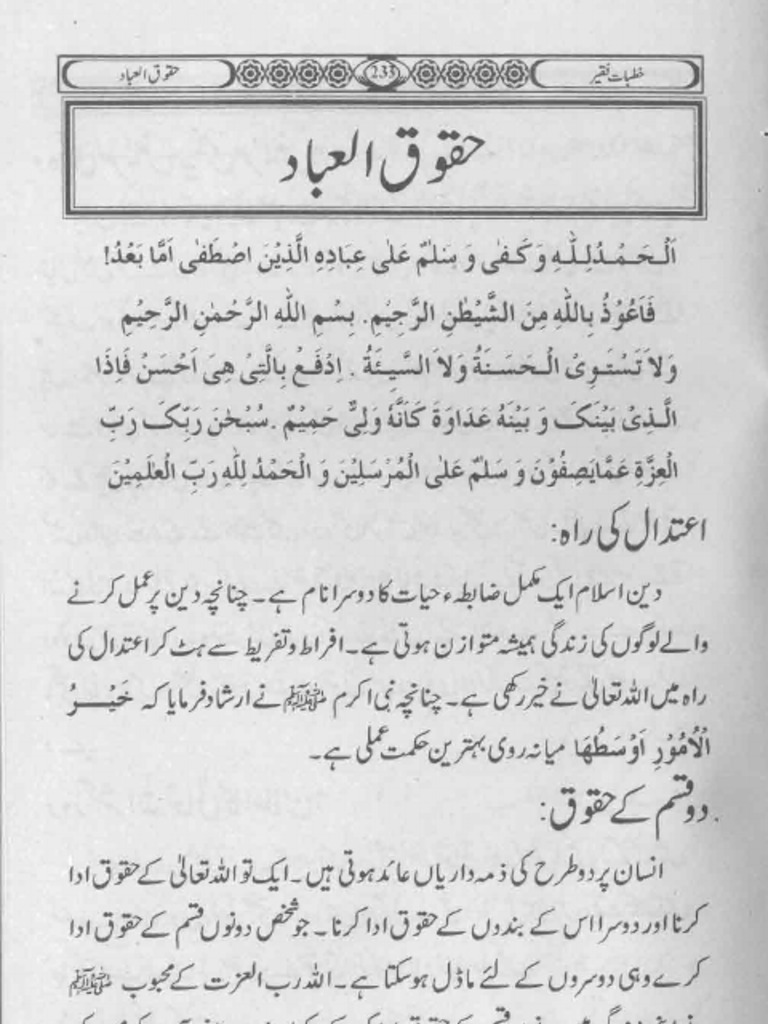 خطبات فقیر 233 حقوق العباد
حقوق العباد
اَلْحَمْدُلِلّٰهِ وَكَفٰى وَ سَلٰمٌ عَلٰى عِبَادِهِ الَّذِيْنَ اصْطَفٰى اَمَّا بَعْدُ!
فَاَعُوْذُ بِاللّٰهِ مِنَ الشَّيْطٰنِ الرَّجِيْمِ. بِسْمِ اللّٰهِ الرَّحْمٰنِ الرَّحِيْمِ
وَلاَ تَسْتَوِىْ الْحَسَنَةُ وَلاَ السَّيِئَةُ . اِدْفَعْ بِالَّتِىْ هِىَ اَحْسَنُ فَاِذَا
الَّذِىْ بَيْنَكَ وَ بَيْنَهُ عَدَاوَةَ كَاَنَّهُ وَلِىٌّ حَمِيْمٌ .سُبْحٰنَ رَبِّكَ رَبِّ
الْعِزَّةِ عَمَّايَصِفُوْنَ وَ سَلٰمٌ عَلٰى الْمُرْسَلِيْنَ وَ الْحَمْدُ لِلّٰهِ رَبِّ الْعٰلَمِيْنَ
اعتدال کی راہ:
دین اسلام ایک مکمل ضابطہء حیات کا دوسرا نام ہے۔ چنانچہ دین پر عمل کرنے
والے لوگوں کی زندگی ہمیشہ متوازن ہوتی ہے۔ افراط و تفریط سے ہٹ کر اعتدال کی
راہ میں اللہ تعالیٰ نے خیر رکھی ہے۔ چنانچہ نبی اکرم ﷺ نے ارشاد فرمایا کہ خَيْرُ
الْاُمُوْرِ اَوْسَطُهَا میانہ روی بہترین حکمت عملی ہے۔
دو قسم کے حقوق:
انسان پر دو طرح کی ذمہ داریاں عائد ہوتی ہیں۔ ایک تو اللہ تعالیٰ کے حقوق ادا
کرنا اور دوسرا اس کے بندوں کے حقوق ادا کرنا۔ جو شخص دونوں قسم کے حقوق ادا
کرے وہی دوسروں کے لئے ماڈل ہو سکتا ہے۔ اللہ رب العزت کے محبوب ﷺ